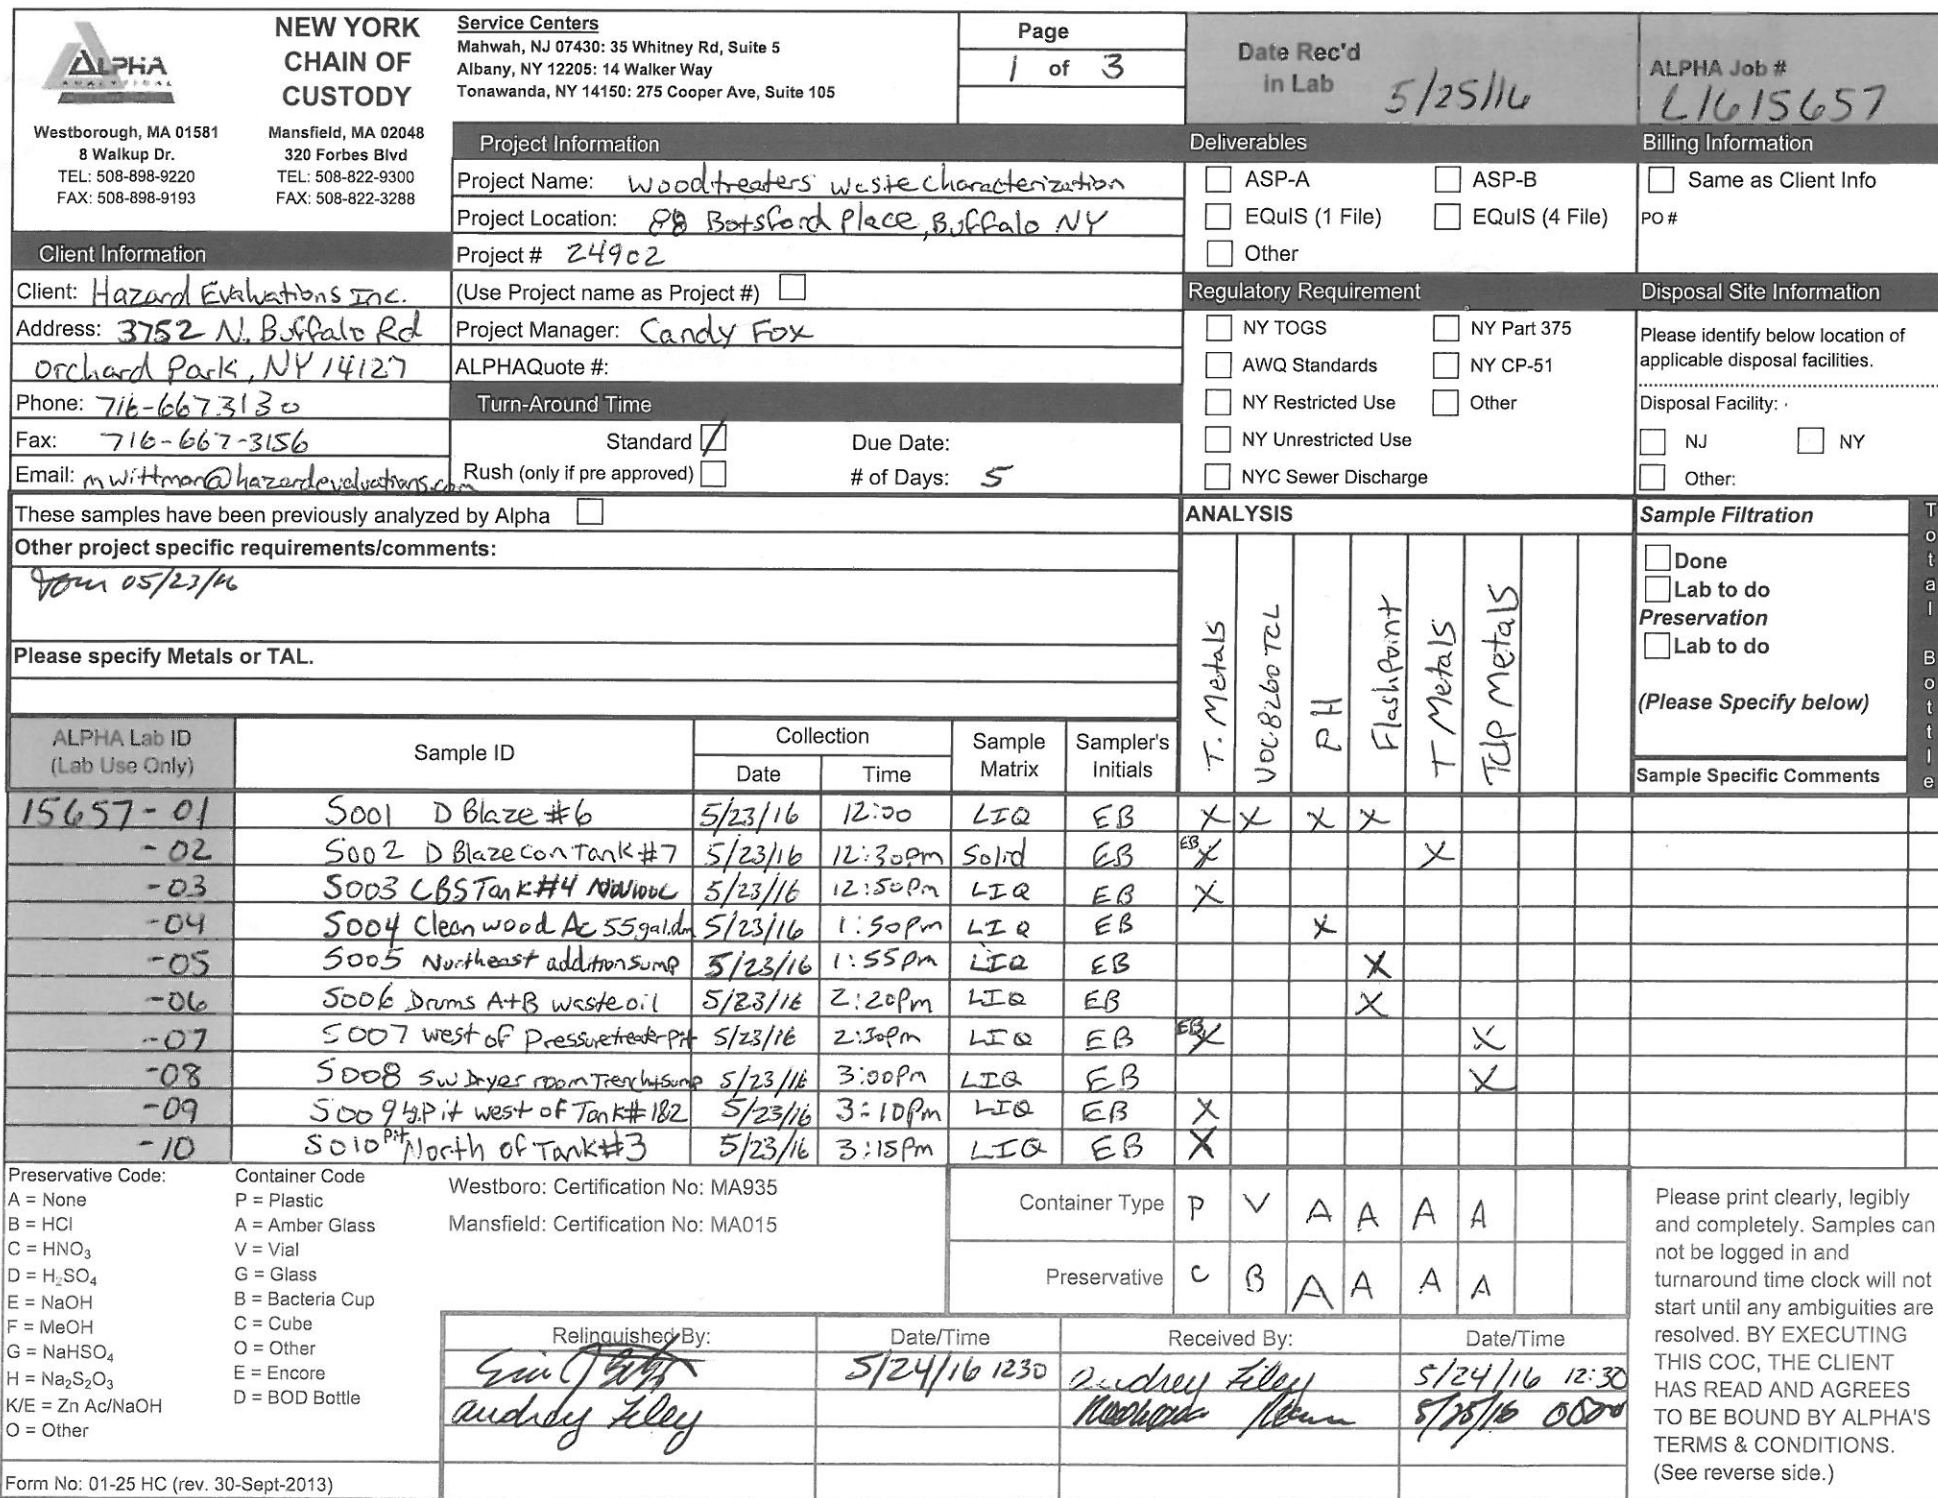 ALPHA
ANALYTICAL
NEW YORK
CHAIN OF
CUSTODY
Westborough, MA 01581
8 Walkup Dr.
TEL: 508-898-9220
FAX: 508-898-9193
Mansfield, MA 02048
320 Forbes Blvd
TEL: 508-822-9300
FAX: 508-822-3288
Service Centers
Mahwah, NJ 07430: 35 Whitney Rd, Suite 5
Albany, NY 12205: 14 Walker Way
Tonawanda, NY 14150: 275 Cooper Ave, Suite 105
Page
1 of 3
Date Rec'd
in Lab 5/25/16
ALPHA Job #
L1615657
Client Information
Client: Hazard Evaluations Inc.
Address: 3752 N. Buffalo Rd
Orchard Park, NY 14127
Phone: 716-6673130
Fax: 716-667-3156
Email: mwittman@hazardevaluations.com
Project Information
Project Name: Woodtreaters waste characterization
Project Location: 88 Botsford Place, Buffalo NY
Project # 24902
(Use Project name as Project #)
Project Manager: Candy Fox
ALPHAQuote #:
Turn-Around Time
Standard / Due Date:
Rush (only if pre approved) # of Days: 5
Deliverables
ASP-A ASP-B
EQuIS (1 File) EQuIS (4 File)
Other
Regulatory Requirement
NY TOGS NY Part 375
AWQ Standards NY CP-51
NY Restricted Use Other
NY Unrestricted Use
NYC Sewer Discharge
Billing Information
Same as Client Info
PO #
Disposal Site Information
Please identify below location of
applicable disposal facilities.
Disposal Facility:
NJ NY
Other:
These samples have been previously analyzed by Alpha
Other project specific requirements/comments:
05/23/16
Please specify Metals or TAL.
ANALYSIS
T. Metals
VOC 8260 TCL
PH
Flashpoint
T Metals
TCLP Metals
Sample Filtration
Done
Lab to do
Preservation
Lab to do
(Please Specify below)
Sample Specific Comments
Total Bottle
ALPHA Lab ID
(Lab Use Only)
Sample ID
Collection
Date Time
Sample
Matrix
Sampler's
Initials
15657-01 S001 D Blaze #6 5/23/16 12:00 LIQ EB X X X X
-02 S002 D Blaze Con Tank #7 5/23/16 12:30pm Solid EB EB X X
-03 S003 CBS Tank #4 5/23/16 12:50Pm LIQ EB X
-04 S004 Clean wood Ac 55gal.dm 5/23/16 1:50Pm LIQ EB X
-05 S005 Northeast addition sump 5/23/16 1:55Pm LIQ EB X
-06 S006 Drums A+B waste oil 5/23/16 2:20Pm LIQ EB X
-07 S007 west of Pressuretreater Pit 5/23/16 2:30pm LIQ EB EB X X
-08 S008 SW Dryer room Trench+Sump 5/23/16 3:00Pm LIQ EB X
-09 S009 Pit west of Tank# 1&2 5/23/16 3:10Pm LIQ EB X
-10 S010 Pit North of Tank#3 5/23/16 3:15Pm LIQ EB X
Preservative Code:
A = None
B = HCl
C = HNO₃
D = H₂SO₄
E = NaOH
F = MeOH
G = NaHSO₄
H = Na₂S₂O₃
K/E = Zn Ac/NaOH
O = Other
Container Code
P = Plastic
A = Amber Glass
V = Vial
G = Glass
B = Bacteria Cup
C = Cube
O = Other
E = Encore
D = BOD Bottle
Westboro: Certification No: MA935
Mansfield: Certification No: MA015
Container Type P V A A A A
Preservative C B A A A A
Relinquished By: Date/Time Received By: Date/Time
5/24/16 1230 Audrey Filey 5/24/16 12:30
Audrey Filey 5/25/16
Please print clearly, legibly
and completely. Samples can
not be logged in and
turnaround time clock will not
start until any ambiguities are
resolved. BY EXECUTING
THIS COC, THE CLIENT
HAS READ AND AGREES
TO BE BOUND BY ALPHA'S
TERMS & CONDITIONS.
(See reverse side.)
Form No: 01-25 HC (rev. 30-Sept-2013)